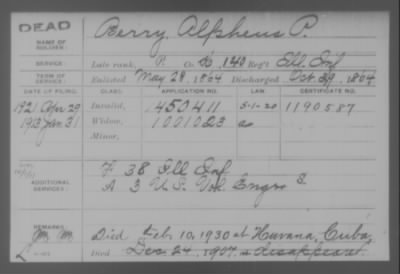 DEAD
NAME OF SOLDIER: Berry, Alpheus P.
SERVICE: Late rank, P. Co. D, 140 Reg't Ill. Inf
TERM OF SERVICE: Enlisted May 28, 1864 Discharged Oct. 29, 1864
DATE OF FILING. CLASS. APPLICATION NO. LAW. CERTIFICATE NO.
1921 Apr 29 Invalid, 450411 5-1-20 1190587
1913 Jan 31 Widow, 1001023 as
Minor,
ADDITIONAL SERVICES: F 38 Ill Inf
A 3 U.S. Vol. Engrs
REMARKS:
Died Feb. 10, 1930 at Havana, Cuba,
Died Dec. 24, 1907, a disappeared.